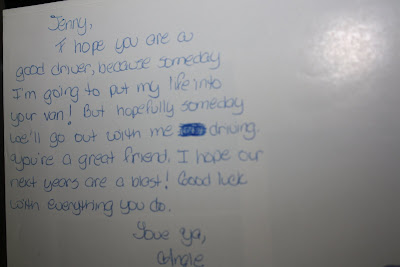 Jenny,
I hope you are a
good driver, because someday
I'm going to put my life into
your van! But hopefully someday
we'll go out with me driving.
You're a great friend. I hope our
next years are a blast! Good luck
with everything you do.
Love ya,